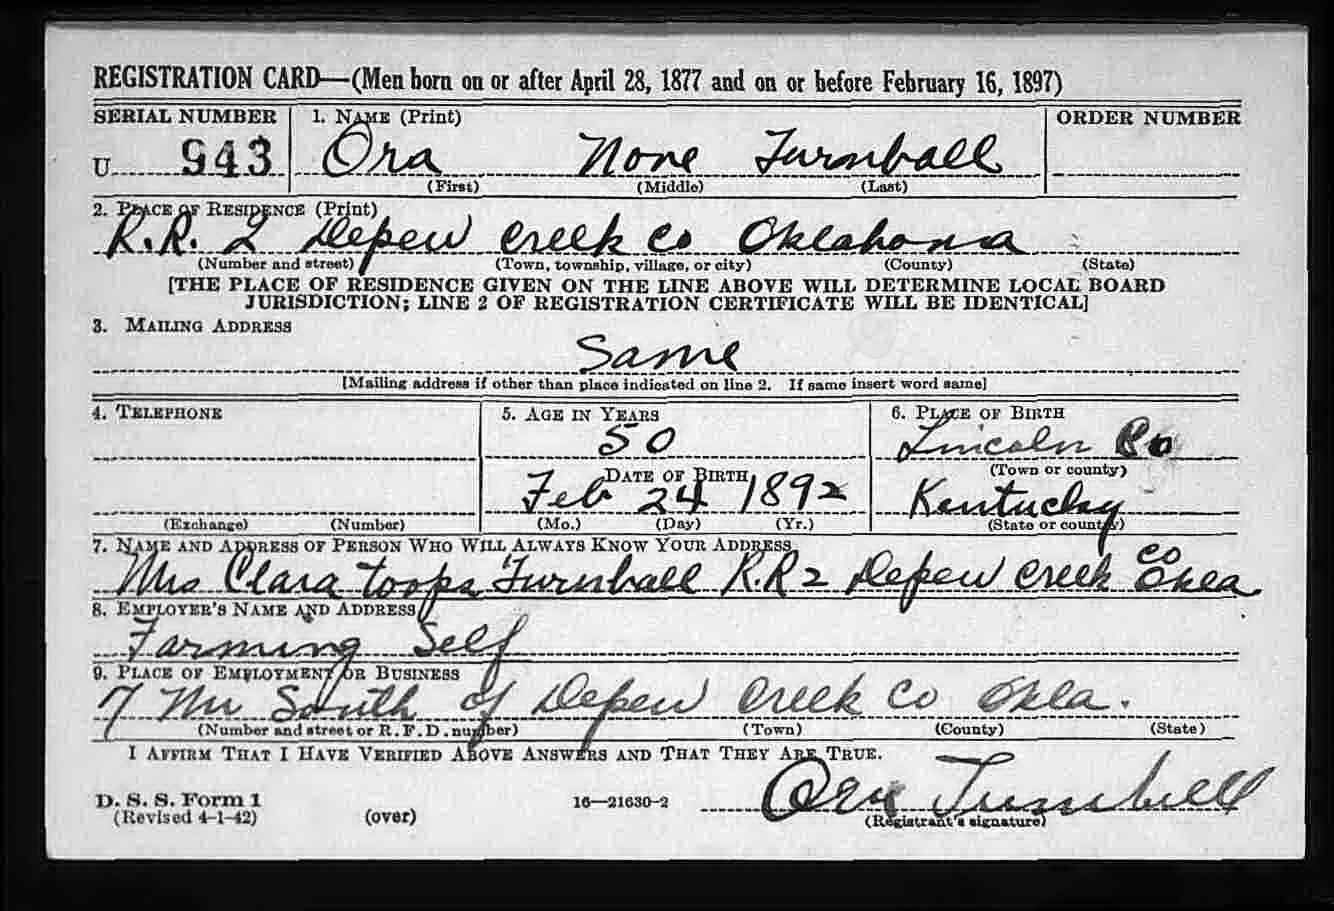 REGISTRATION CARD—(Men born on or after April 28, 1877 and on or before February 16, 1897)
SERIAL NUMBER 1. NAME (Print) ORDER NUMBER
U 943 Ora None Turnball
(First) (Middle) (Last)
2. PLACE OF RESIDENCE (Print)
R.R. 2 Depew Creek Co Oklahoma
(Number and street) (Town, township, village, or city) (County) (State)
[THE PLACE OF RESIDENCE GIVEN ON THE LINE ABOVE WILL DETERMINE LOCAL BOARD
JURISDICTION; LINE 2 OF REGISTRATION CERTIFICATE WILL BE IDENTICAL]
3. MAILING ADDRESS
Same
[Mailing address if other than place indicated on line 2. If same insert word same]
4. TELEPHONE 5. AGE IN YEARS 6. PLACE OF BIRTH
50 Lincoln Co
DATE OF BIRTH (Town or county)
Feb 24 1892 Kentucky
(Exchange) (Number) (Mo.) (Day) (Yr.) (State or country)
7. NAME AND ADDRESS OF PERSON WHO WILL ALWAYS KNOW YOUR ADDRESS
Mrs Clara Toops Turnball R.R 2 Depew Creek Co Okla.
8. EMPLOYER'S NAME AND ADDRESS
Farming Self
9. PLACE OF EMPLOYMENT OR BUSINESS
7 Mi South of Depew Creek Co Okla.
(Number and street or R. F. D. number) (Town) (County) (State)
I AFFIRM THAT I HAVE VERIFIED ABOVE ANSWERS AND THAT THEY ARE TRUE.
Ora Turnbull
D. S. S. Form 1 16—21630-2
(Revised 4-1-42) (over) (Registrant's signature)